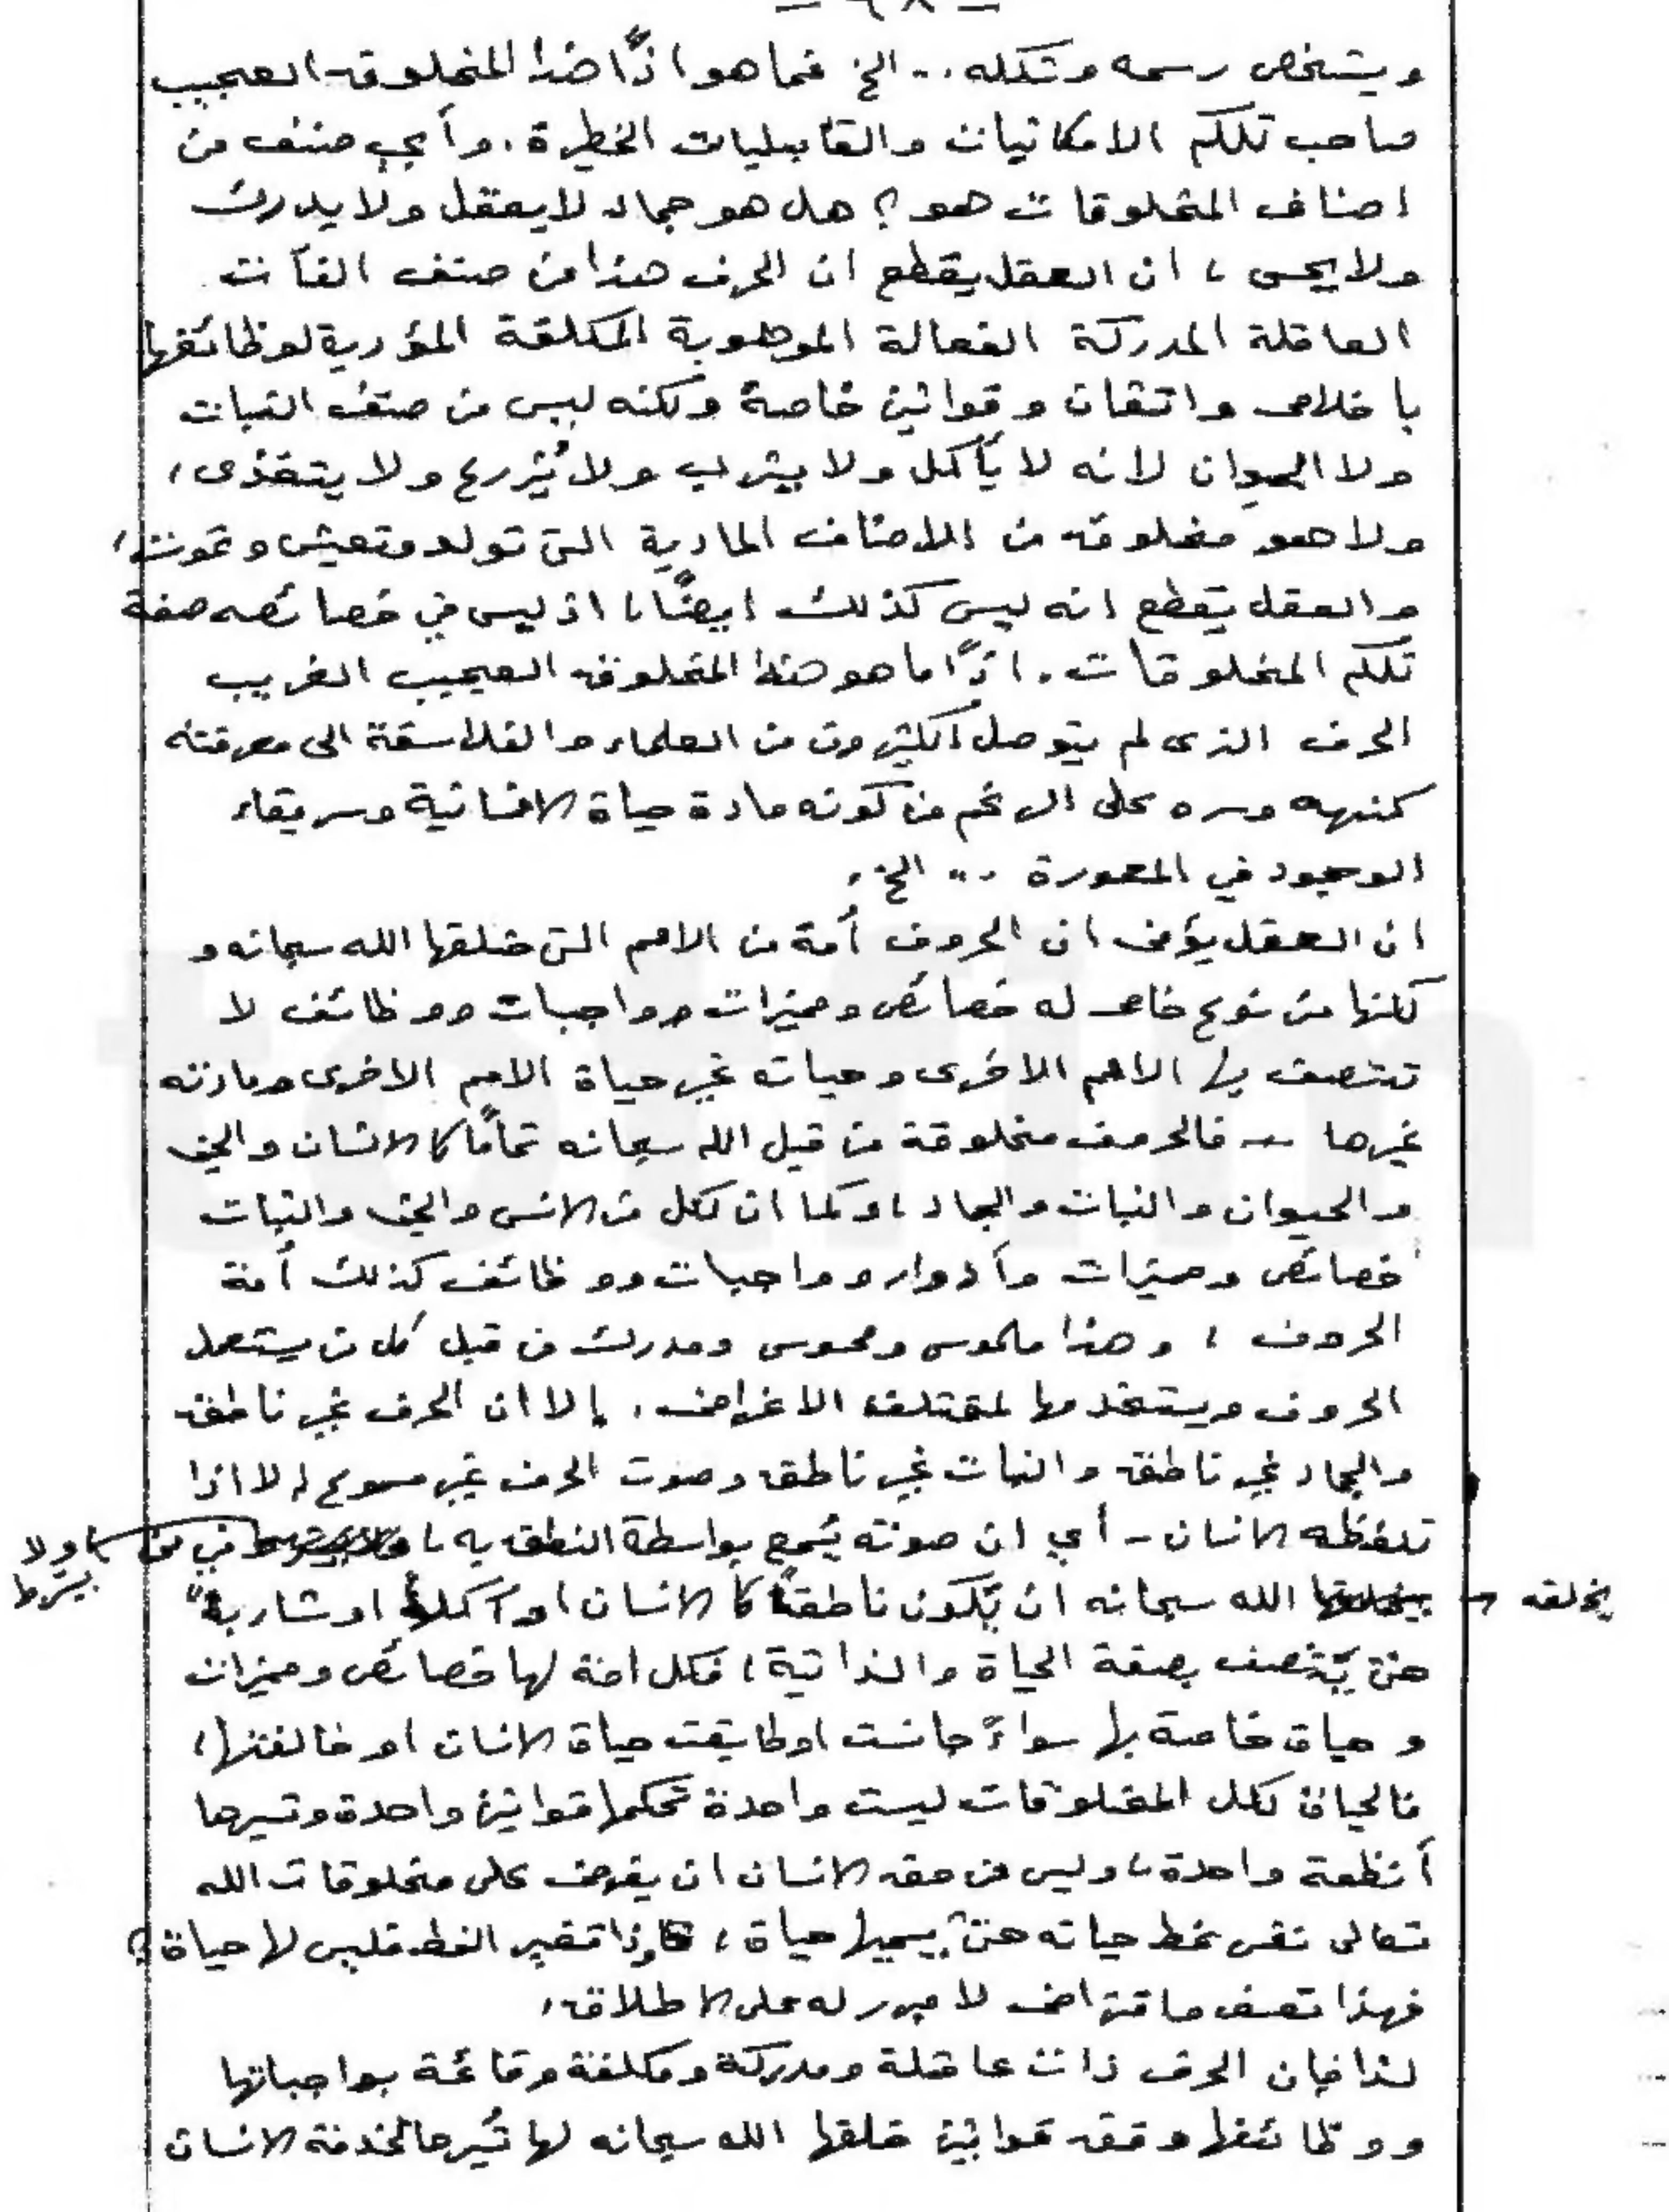 - ٦٨ -
ويشخص رسمه وشكله .. الخ فما هو اذًا هذا المخلوق العجيب
صاحب تلكم الامكانيات والقابليات الخطيرة . وأي صنف من
اصناف المخلوقات هو ؟ هل هو جماد لا يعقل ولا يدرك
ولا يحس ، ان العقل يقطع ان الحرف هذا من صنف
العاقلة المدركة الفعالة الموهوبة المكلفة المؤدية لوظائفها
باخلاص واتقان وقوانين خاصة ولكنه ليس من صنف النبات
ولا الحيوان لانه لا يأكل ولا يشرب ولا يُزرع ولا يتغذى ،
ولا هو مخلوق من الاصناف المادية التي تولد وتعيش وتموت ،
والعقل يقطع انه ليس كذلك ايضًا ، اذ ليس في خصائصه صفة
تلكم المخلوقات . اذًا ما هو هذا المخلوق العجيب الغريب
الحرف الذي لم يتوصل اكثرون من العلماء والفلاسفة الى معرفته
كنهه وسره على الرغم من كونه مادة حياة الانسانية وسر بقاء
الوجود في المعمورة .. الخ .
ان العقل يؤمن ان الحروف أمة من الامم التي خلقها الله سبحانه و
لكنها من نوع خاص له خصائص ومميزات وواجبات ووظائف لا
تتصف بها الامم الاخرى وحياته غير حياة الامم الاخرى ومادته
غيرها – فالحروف مخلوقة من قبل الله سبحانه تمامًا كالانسان والجن
والحيوان والنبات والجماد ، وكما ان لكل من الانس والجن والنبات
خصائص ومميزات وأدوار وواجبات ووظائف كذلك أمة
الحروف ، وهذا ملموس ومحسوس ومدرك من قبل كل من يستعمل
الحروف ويستخدمها لمختلف الاغراض . إلا ان الحرف غير ناطق
والجماد غير ناطق والنبات غير ناطق وصوت الحرف غير مسموع إلا اذا
تلفظه الانسان - أي ان صوته يُسمع بواسطة النطق به ، ولا يشترط في من
يخلقه الله سبحانه ان يكون ناطقًا كالانسان او آكلاً او شاربًا
حتى يتصف بصفة الحياة والذاتية ، فكل امة لها خصائص ومميزات
وحياة خاصة بها سواءً جانست او طابقت حياة الانسان او خالفتها ،
فالحياة لكل المخلوقات ليست واحدة تحكمها قوانين واحدة وتسيرها
أنظمة واحدة ، وليس من حق الانسان ان يفرض على مخلوقات الله
تعالى نفس نمط حياته حتى يسميها حياة ، فاذا تغير النمط فليس لها حياة ؟
فهذا تعسف وافتراض لا مبرر له على الاطلاق .
لذا فإن الحرف ذات عاقلة ومدركة ومكلفة وقائمة بواجباتها
ووظائفها وفق قوانين خلقها الله سبحانه لها تُسيرها لخدمة الانسان